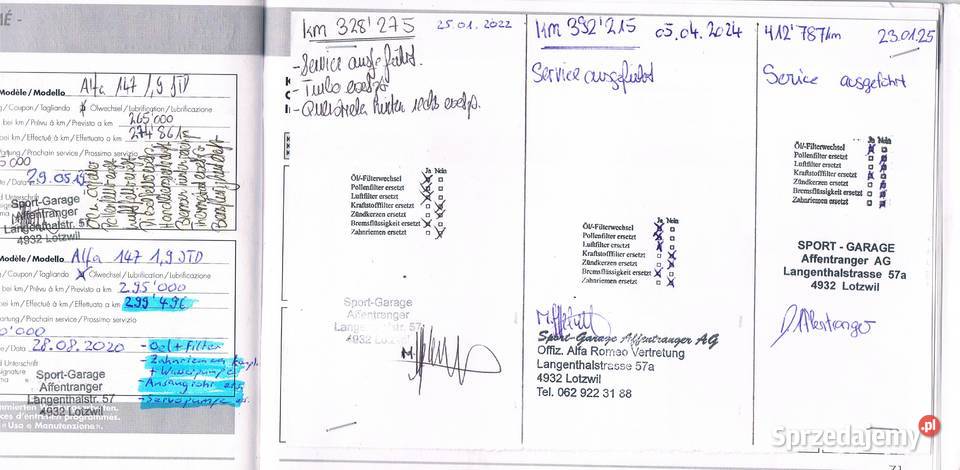 MÉ -
Modèle / Modello Alfa 147 1,9 JTD
g / Coupon / Tagliando Ölwechsel / Lubrification / Lubrificazione
bei km / Prévu à km / Previsto a km 265'000
bei km / Effectué à km / Effettuato a km 274'861
artung / Prochain service / Prossimo servizio
te / Data 29.05.19
Sport-Garage
Affentranger
Langenthalstr. 57
4932 Lotzwil
Modèle / Modello Alfa 147 1,9 JTD
g / Coupon / Tagliando Ölwechsel / Lubrification / Lubrificazione
bei km / Prévu à km / Previsto a km 295'000
bei km / Effectué à km / Effettuato a km 299'496
artung / Prochain service / Prossimo servizio
0'000
e / Data 28.08.2020
- Oel + Filter
- Zahnriemen kompl.
+ Wasserpumpe
- Ansaugrohr ers.
- Servopumpe ers.
Unterschrift
signature
ma
Sport-Garage
Affentranger
Langenthalstr. 57
4932 Lotzwil
ces d'entretien programmés.
« Uso e Manutenzione».
km 328'275 25.01.2022
- Service ausgeführt.
- Turbo ersetzt
- Querlenker hinten rechts ersetzt.
Ja Nein
Öl/-Filterwechsel
Pollenfilter ersetzt
Luftfilter ersetzt
Kraftstofffilter ersetzt
Zündkerzen ersetzt
Bremsflüssigkeit ersetzt
Zahnriemen ersetzt
Sport-Garage
Affentranger
Langenthalstr. 57
4932 Lotzwil
km 392'215 05.04.2024
Service ausgeführt
Ja Nein
Öl/-Filterwechsel
Pollenfilter ersetzt
Luftfilter ersetzt
Kraftstofffilter ersetzt
Zündkerzen ersetzt
Bremsflüssigkeit ersetzt
Zahnriemen ersetzt
Sport-Garage Affentranger AG
Offiz. Alfa Romeo Vertretung
Langenthalstrasse 57a
4932 Lotzwil
Tel. 062 922 31 88
412'787km 23.01.25
Service ausgeführt
Ja Nein
Öl/-Filterwechsel
Pollenfilter ersetzt
Luftfilter ersetzt
Kraftstofffilter ersetzt
Zündkerzen ersetzt
Bremsflüssigkeit ersetzt
Zahnriemen ersetzt
SPORT - GARAGE
Affentranger AG
Langenthalstrasse 57a
4932 Lotzwil
D. Affentranger
71
Sprzedajemy.pl